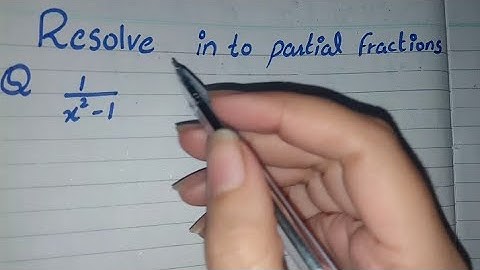 Resolve in to partial fractions
Q 1/(x²-1)